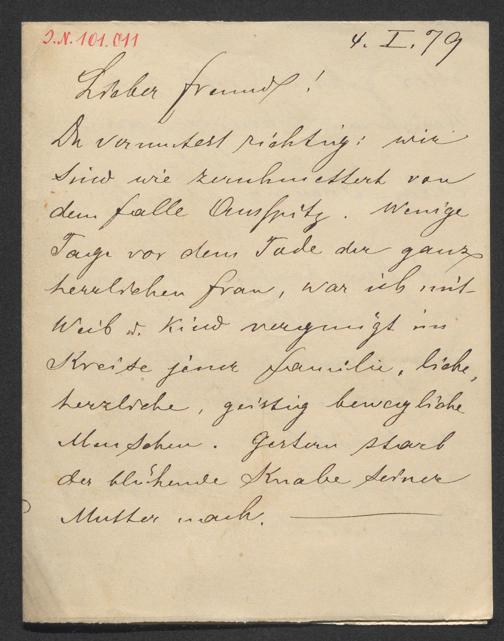 J.N. 101.011
4. I. 79
Lieber Freund!
Du vermutest richtig: wir
sind wie zerschmettert von
dem Falle Auspitz. Wenige
Tage vor dem Tode der ganz
herrlichen Frau, war ich mit
Weib u. Kind vergnügt im
Kreise jener Familie, liebe,
herzliche, geistig bewegliche
Menschen. Gestern starb
der blühende Knabe seiner
Mutter nach.